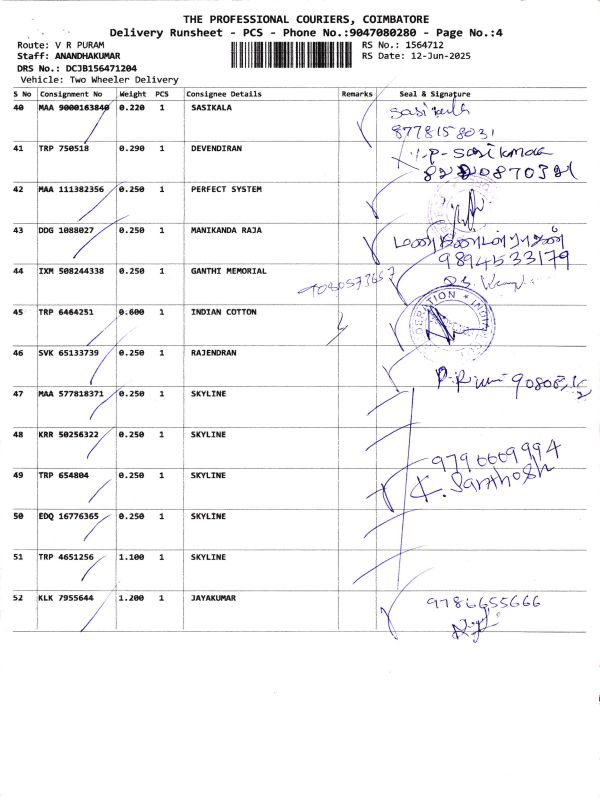 THE PROFESSIONAL COURIERS, COIMBATORE
Delivery Runsheet - PCS - Phone No.:9047080280 - Page No.:4
Route: V R PURAM RS No.: 1564712
Staff: ANANDHAKUMAR RS Date: 12-Jun-2025
DRS No.: DCJB156471204
Vehicle: Two Wheeler Delivery
S No Consignment No Weight PCS Consignee Details Remarks Seal & Signature
40 MAA 9000163840 0.220 1 SASIKALA Sasikala
8778158031
41 TRP 750518 0.290 1 DEVENDIRAN
42 MAA 111382356 0.250 1 PERFECT SYSTEM
43 DDG 1088027 0.250 1 MANIKANDA RAJA மணிகண்டராஜன்
9894533179
44 IXM 508244338 0.250 1 GANTHI MEMORIAL 9080573657
45 TRP 6464251 0.600 1 INDIAN COTTON
46 SVK 65133739 0.250 1 RAJENDRAN
47 MAA 577818371 0.250 1 SKYLINE
48 KRR 50256322 0.250 1 SKYLINE 9796669994
49 TRP 654804 0.250 1 SKYLINE K. Santhosh
50 EDQ 16776365 0.250 1 SKYLINE
51 TRP 4651256 1.100 1 SKYLINE
52 KLK 7955644 1.200 1 JAYAKUMAR 9786655666